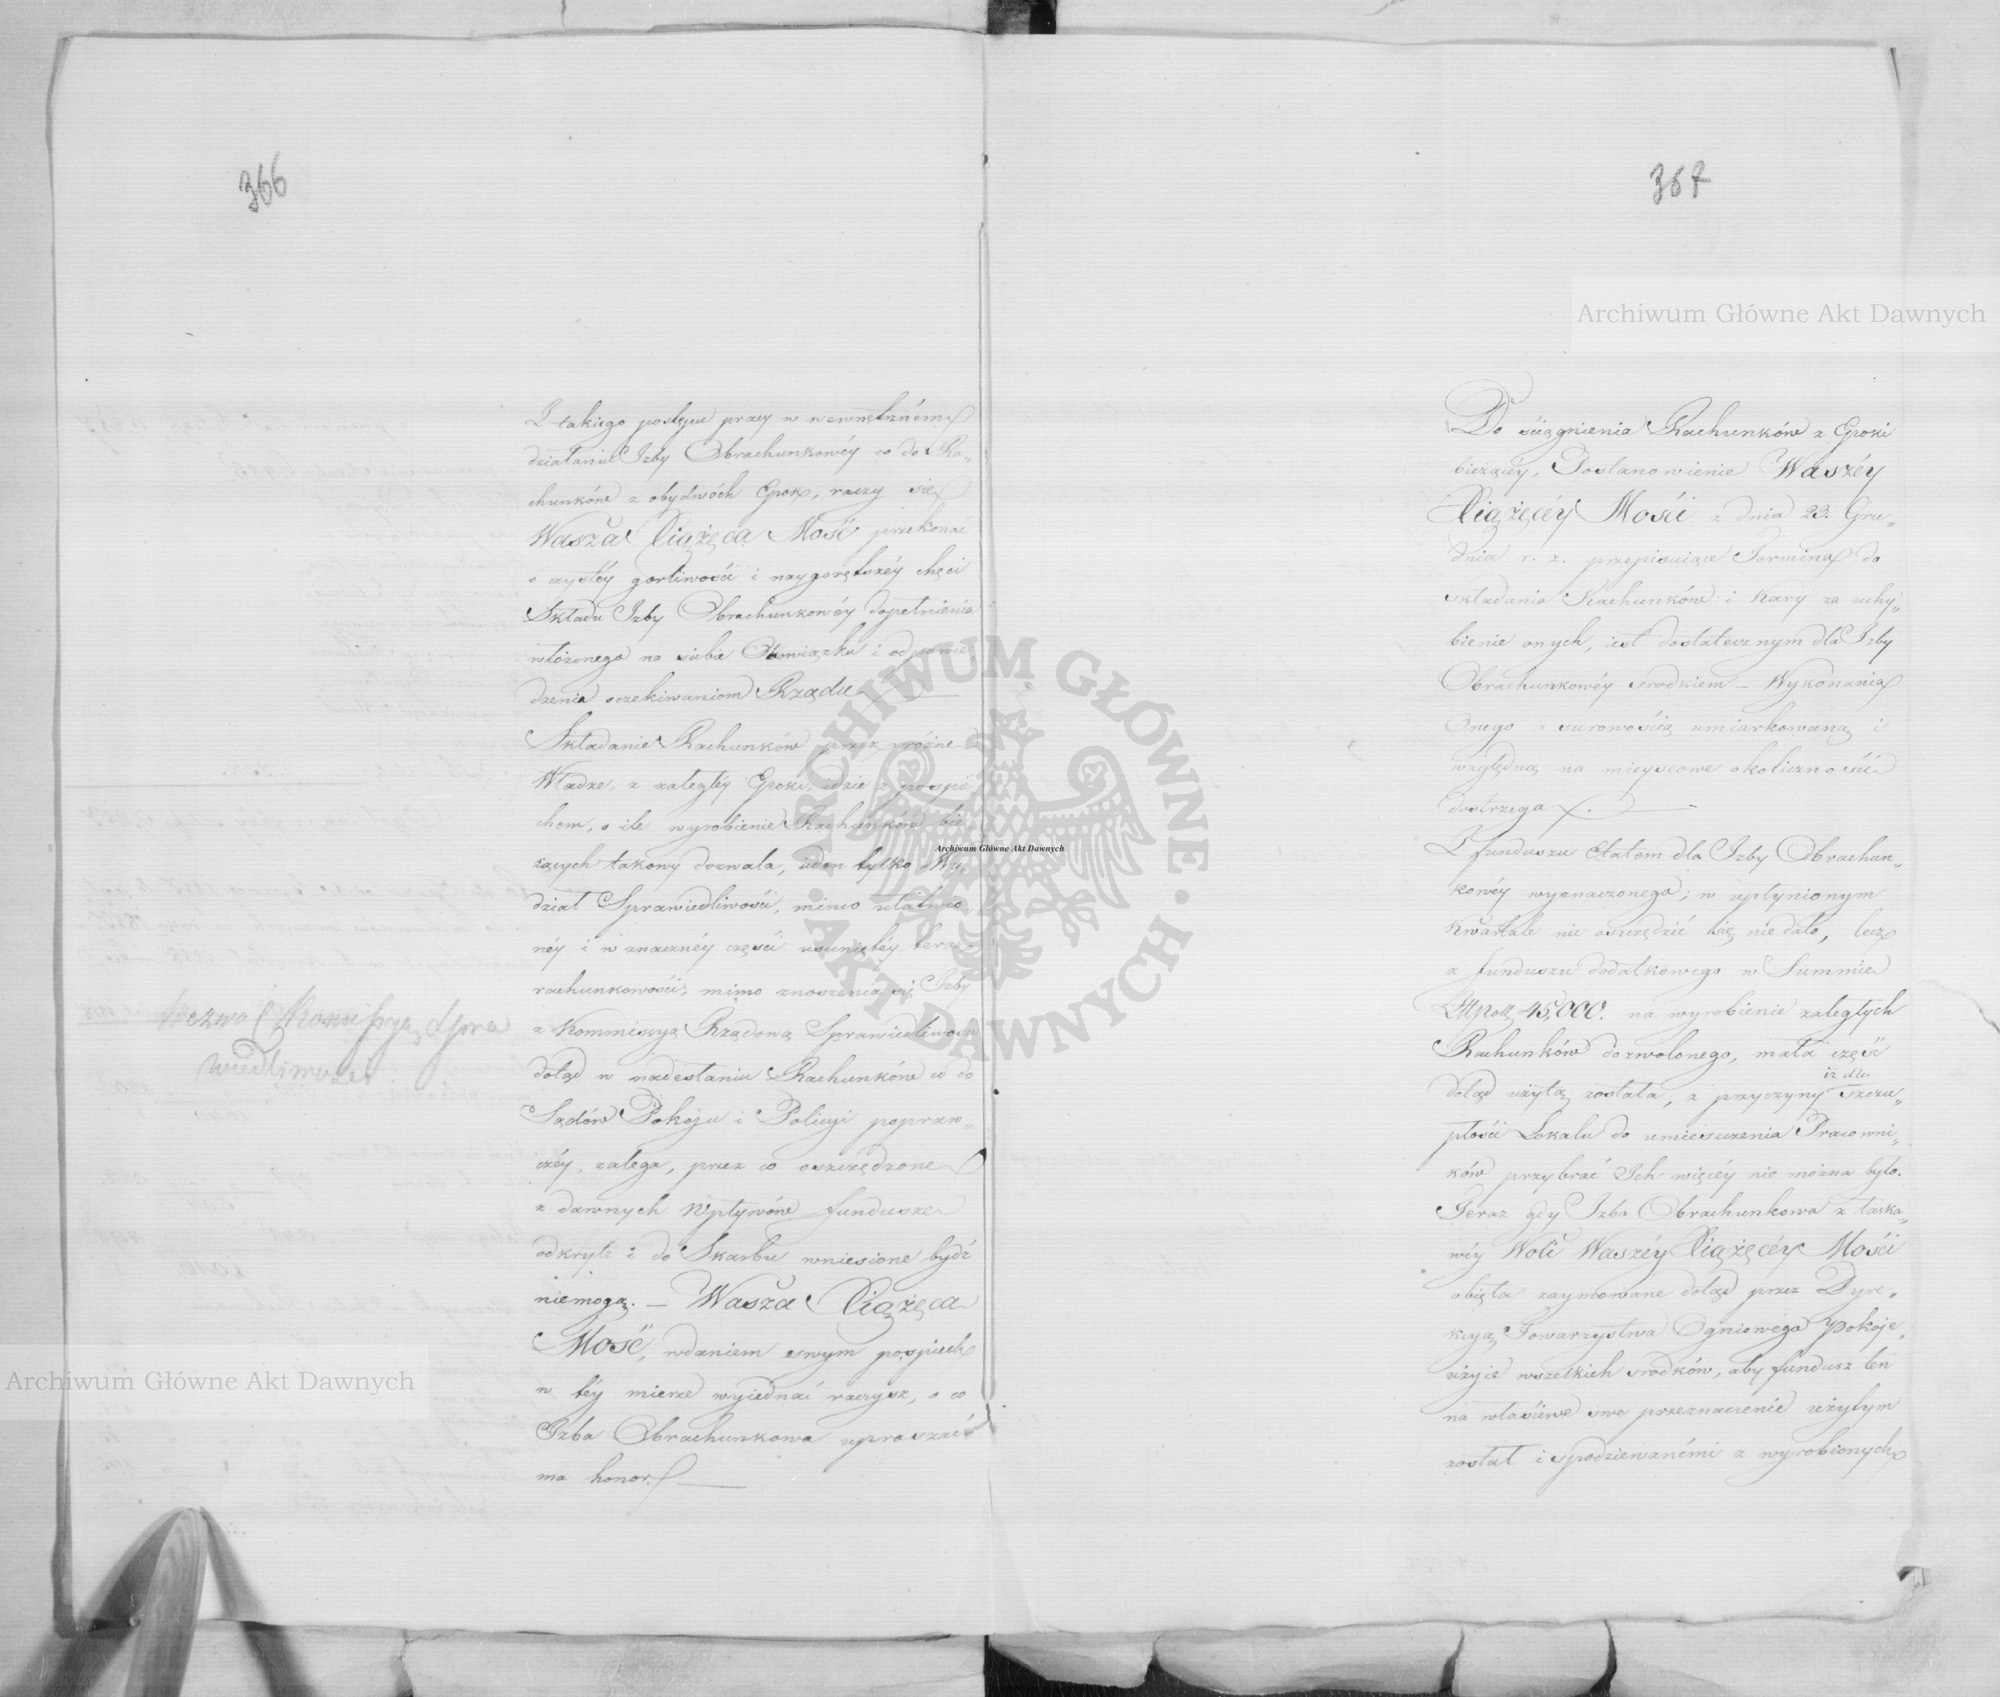 366
Z takiego postępu pracy w wewnętrzném
działaniu Izby Obrachunkowéy co do Ra„
chunków z obydwóch Epok, raczy się
Wasza Xiążęca Mość przekonać
o czystéy gorliwości i naygorętszéy chęci
Składu Izby Obrachunkowéy dopełnienia
włożonego na siebie Obowiązku i odpowie„
dzenia oczekiwaniom Rządu
Składanie Rachunków przez różne
Władze, z zaległéy Epoki, idzie z pospie
chem, o ile wyrobienie Rachunków bie„
żących takowy dozwala, ieden tylko Wy„
dział Sprawiedliwości, mimo ułatwio„
néy i w znacznéy części usuniętéy
rachunkowości, mimo znoszenia się Izby
z Kommissyą Rządową Sprawiedliwości
dotąd w nadesłaniu Rachunków co do
Sądów Pokoju i Policyi popraw„
czéy, zalega, przez co oszczędzone
z dawnych Wpływów fundusze
odkryte i do Skarbu wniesione bydź
niemogą. — Wasza Xiążęca
Mość, wdaniem swym pospiech
w téy mierze wyiednać raczysz, o co
Izba Obrachunkowa upraszać
ma honor. —
Wezwać Kommissyą Spra
wiedliwości
367
Do ściągnienia Rachunków z Epoki
bieżącéy, Postanowienie Waszéy
Xiążęcéy Mości z dnia 23. Gru„
dnia r. z. przepisuiące Termina do
składania Rachunków i kary za uchy„
bienie onych, iest dostatecznym dla Izby
Obrachunkowéy srodkiem — Wykonania
Onego z surowością umiarkowaną i
względną na mieyscowe okoliczności
dostrzega. —
Z funduszu Etatem dla Izby Obrachun„
kowéy wyznaczonego; w upłynionym
Kwartale nic oszczędzić się nie dało, lecz
z funduszu dodatkowego w Summie
Złtpol. 45,000. na wyrobienie zaległych
Rachunków dozwolonego, mała część
dotąd użytą została, z przyczyny iż dla szczu„
płości Lokalu do umieszczenia Pracowni„
ków przybrać Ich więcéy nie można było.
Teraz gdy Izba Obrachunkowa z łaska„
wéy Woli Waszéy Xiążęcéy Mości
obięła zaymowane dotąd przez Dyre„
kcyą Towarzystwa Ogniowego pokoje,
użyie wszelkich srodków, aby fundusz ten
na właściwe swe przeznaczenie użytym
został i spodziewanémi z wyrobionych
Archiwum Główne Akt Dawnych
Archiwum Główne Akt Dawnych
Archiwum Główne Akt Dawnych
ARCHIWUM GŁÓWNE · AKT DAWNYCH ·